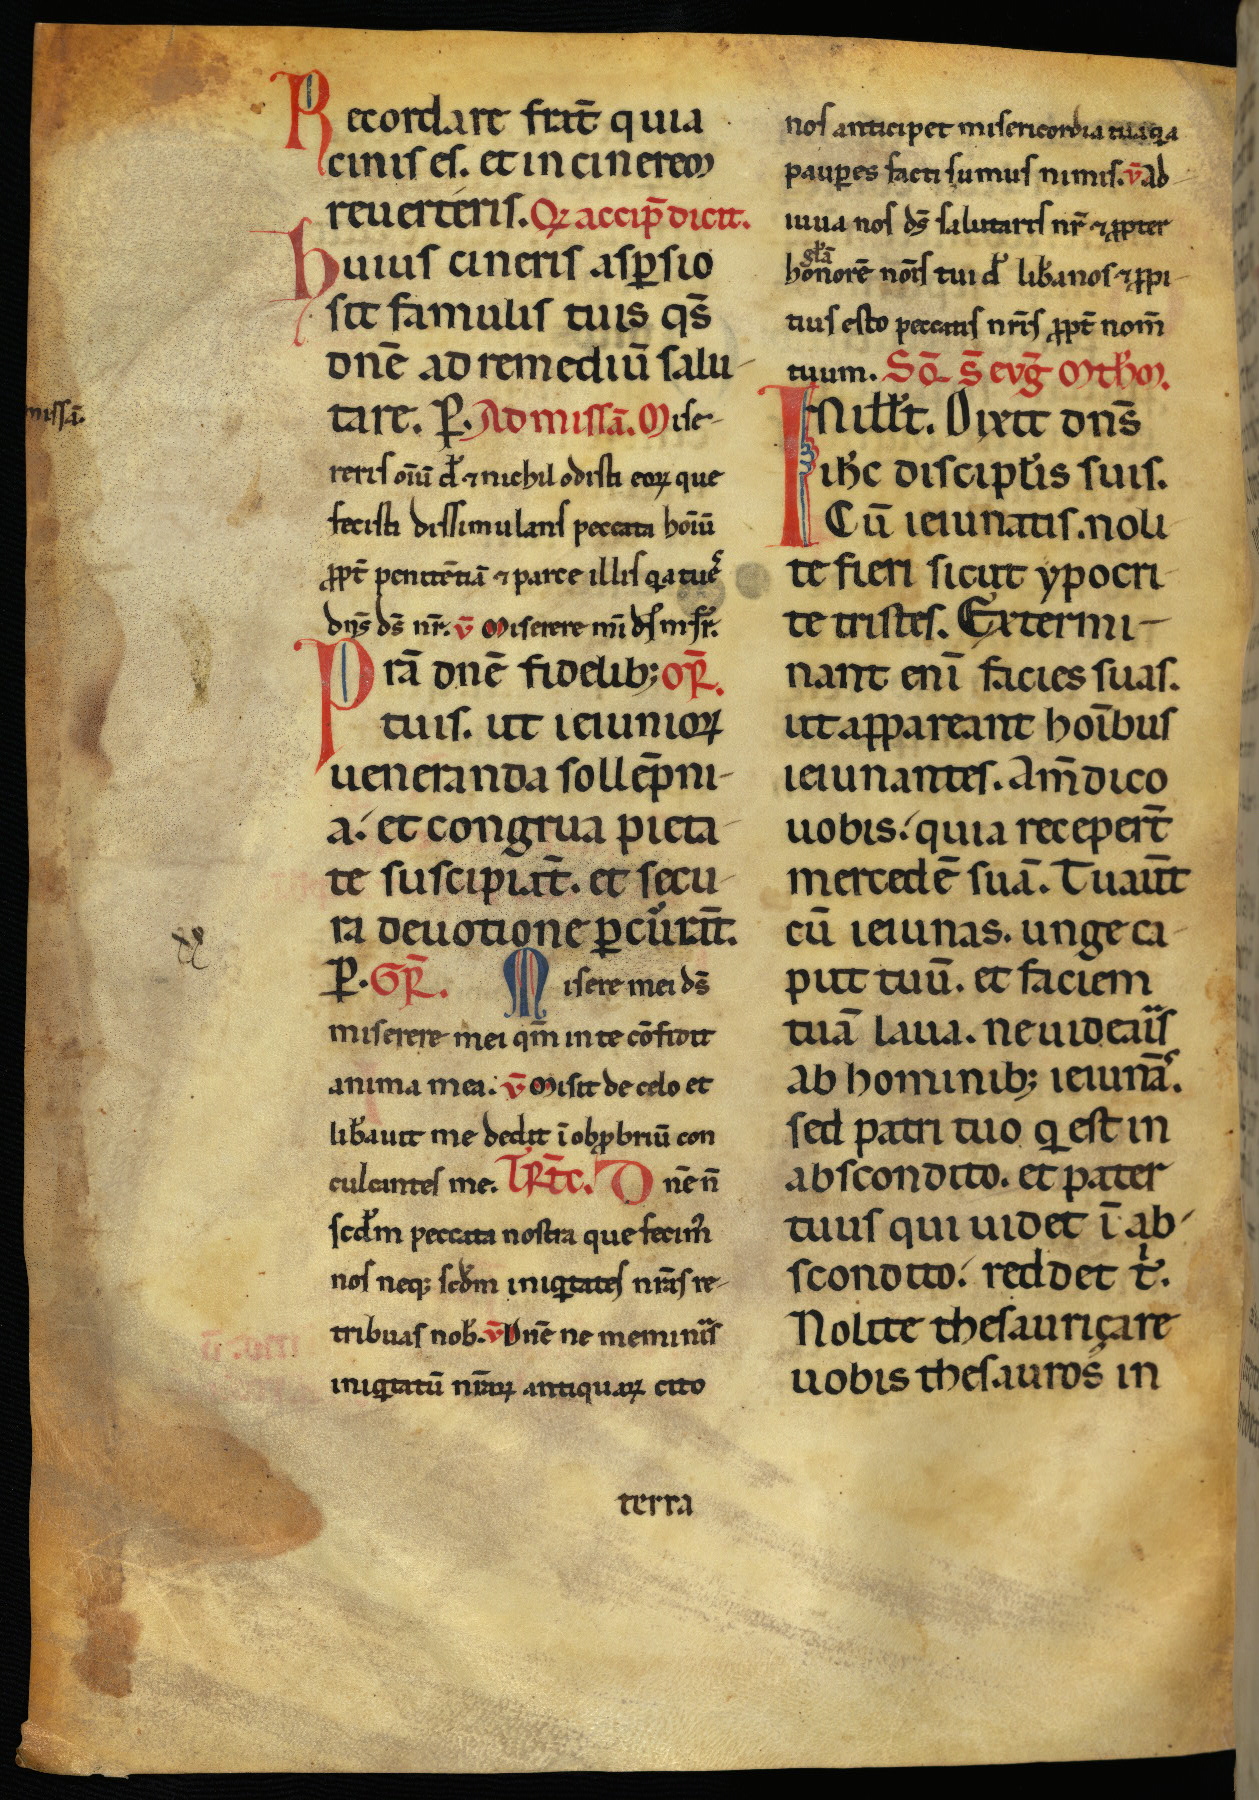 Recordare frat̄ quia
cinis es. et in cinerem
reuerteris. Qꝝ accip̄ dicit.
huius cineris asꝑsio
sit famulis tuis qs̄
dn̄e ad remediū salu
tare. P̱. Ad missā. Mise-
missā.
reris oīū ds̓ ⁊ nichil odisti eoꝝ que
fecisti dissimulans peccata hoīū
ꝓpt̄ penitētiā ⁊ parce illis q̣a tu es̄
dn̄s ds̄ nr̄. v̄ Miserere mī ds̓ mīsr̄.
Prā dn̄e fidelib; oR̄.
tuis. ut ieiunioꝝ
ueneranda sollēpni-
a. et congrua pieta
te suscipiāt. et secu
ra deuotione ꝑcurrāt.
P̱. GR̄. Misere mei ds̄
miserere mei qm̄ in te cōfidit
anima mea. v̄ Misit de celo et
lib̓auit me dedit ī obꝓbriū con
culcantes me. TR̄c. Dn̄e n̄
scd̓m peccata nostra que fecim̓
nos neq; scd̓m iniq̇tates nr̄as re-
tribuas nob̓. v̄ Dn̄e ne memin̄is
iniq̇tatū nr̄aꝝ antiquaꝝ cito
nos anticipet misericordia tua q̣a
pauꝑes facti sumus nimis. v̄ Ad
iuua nos ds̄ salutaris nr̄ ⁊ ꝓpter
gl̓ā
honorē nōis tui d̓ lib̓a nos ⁊ ꝓpi-
tius esto peccatis nr̄is ꝓpt̄ nom̄
tuum. Sq̄ s̄ evḡ Mth̓m.
IN ill̓ t. Dixit dn̄s
ih̓c discipl̓is suis.
Cū ieiunatis. noli
te fieri sicut ypocri-
te tristes. Extermi-
nant enī facies suas.
ut appareant hoībus
ieiunantes. Am̄ dico
uobis. quia recepert̄
mercedē suā. Tu aūt
cū ieiunas. unge ca-
put tuū. et faciem
tuā laua. ne uidearis
ab hominib; ieiunās.
sed patri tuo q̇ est in
abscondito. et pater
tuus qui uidet ī ab-
scondito. reddet t̓.
Nolite thesauriçare
uobis thesauros in
terra